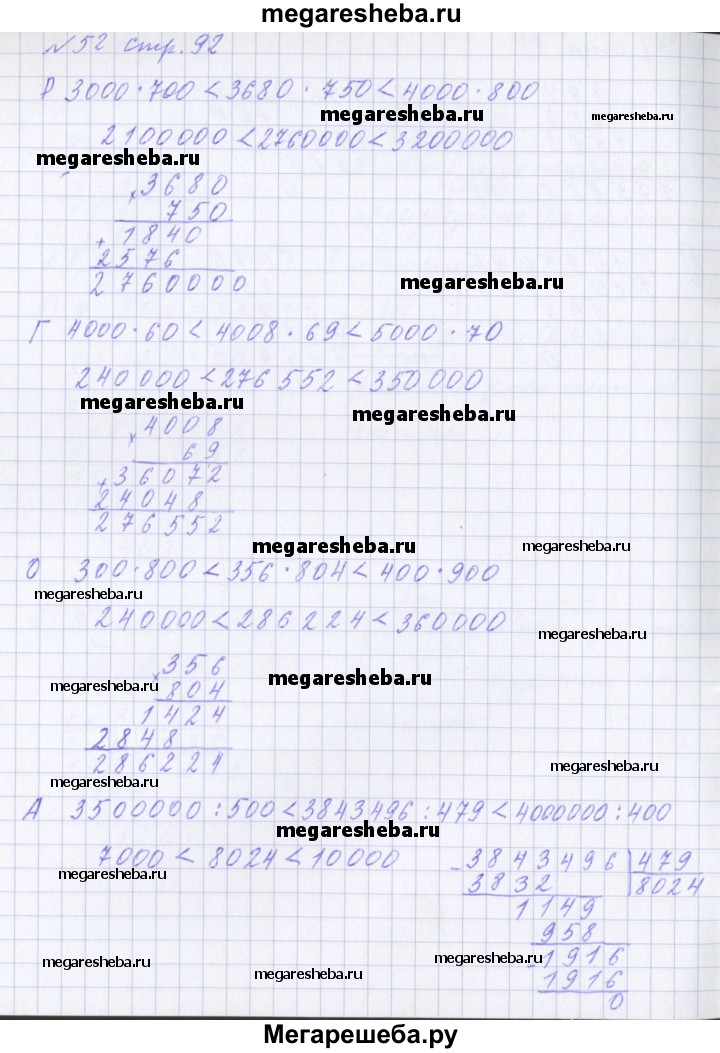 megaresheba.ru
№52 стр. 92
Р 3000·700<3680·750<4000·800
megaresheba.ru
megaresheba.ru
2100000<2760000<3200000
megaresheba.ru
× 3680
750
+ 1840
2576
2760000
megaresheba.ru
Г 4000·60<4008·69<5000·70
240000<276552<350000
megaresheba.ru
megaresheba.ru
× 4008
69
+ 36072
24048
276552
megaresheba.ru
megaresheba.ru
О 300·800<356·804<400·900
megaresheba.ru
240000<286224<360000
megaresheba.ru
× 356
804
megaresheba.ru
megaresheba.ru
1424
2848
286224
megaresheba.ru
megaresheba.ru
А 3500000:500<3843496:479<4000000:400
megaresheba.ru
7000<8024<10000
- 3843496 | 479
3832 | 8024
megaresheba.ru
1149
958
- 1916
1916
0
megaresheba.ru
megaresheba.ru
megaresheba.ru
Мегарешеба.ру